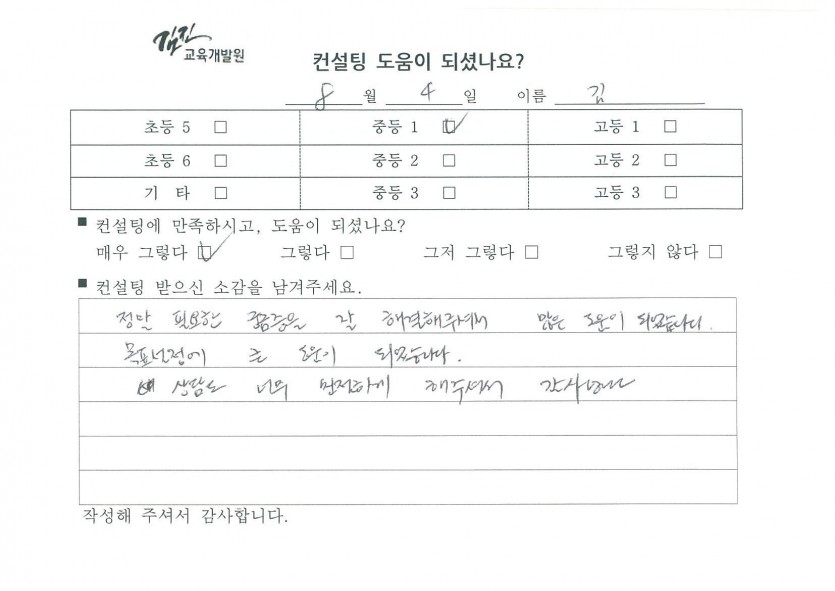 김진
교육개발원
컨설팅 도움이 되셨나요?
8월 4일 이름 김
초등 5 □ 중등 1 ☑ 고등 1 □
초등 6 □ 중등 2 □ 고등 2 □
기 타 □ 중등 3 □ 고등 3 □
■ 컨설팅에 만족하시고, 도움이 되셨나요?
매우 그렇다 ☑ 그렇다 □ 그저 그렇다 □ 그렇지 않다 □
■ 컨설팅 받으신 소감을 남겨주세요.
정말 필요한 궁금증을 잘 해결해주셔서 많은 도움이 되었습니다.
목표선정에 큰 도움이 되었습니다.
상담도 너무 친절하게 해주셔서 감사합니다
작성해 주셔서 감사합니다.